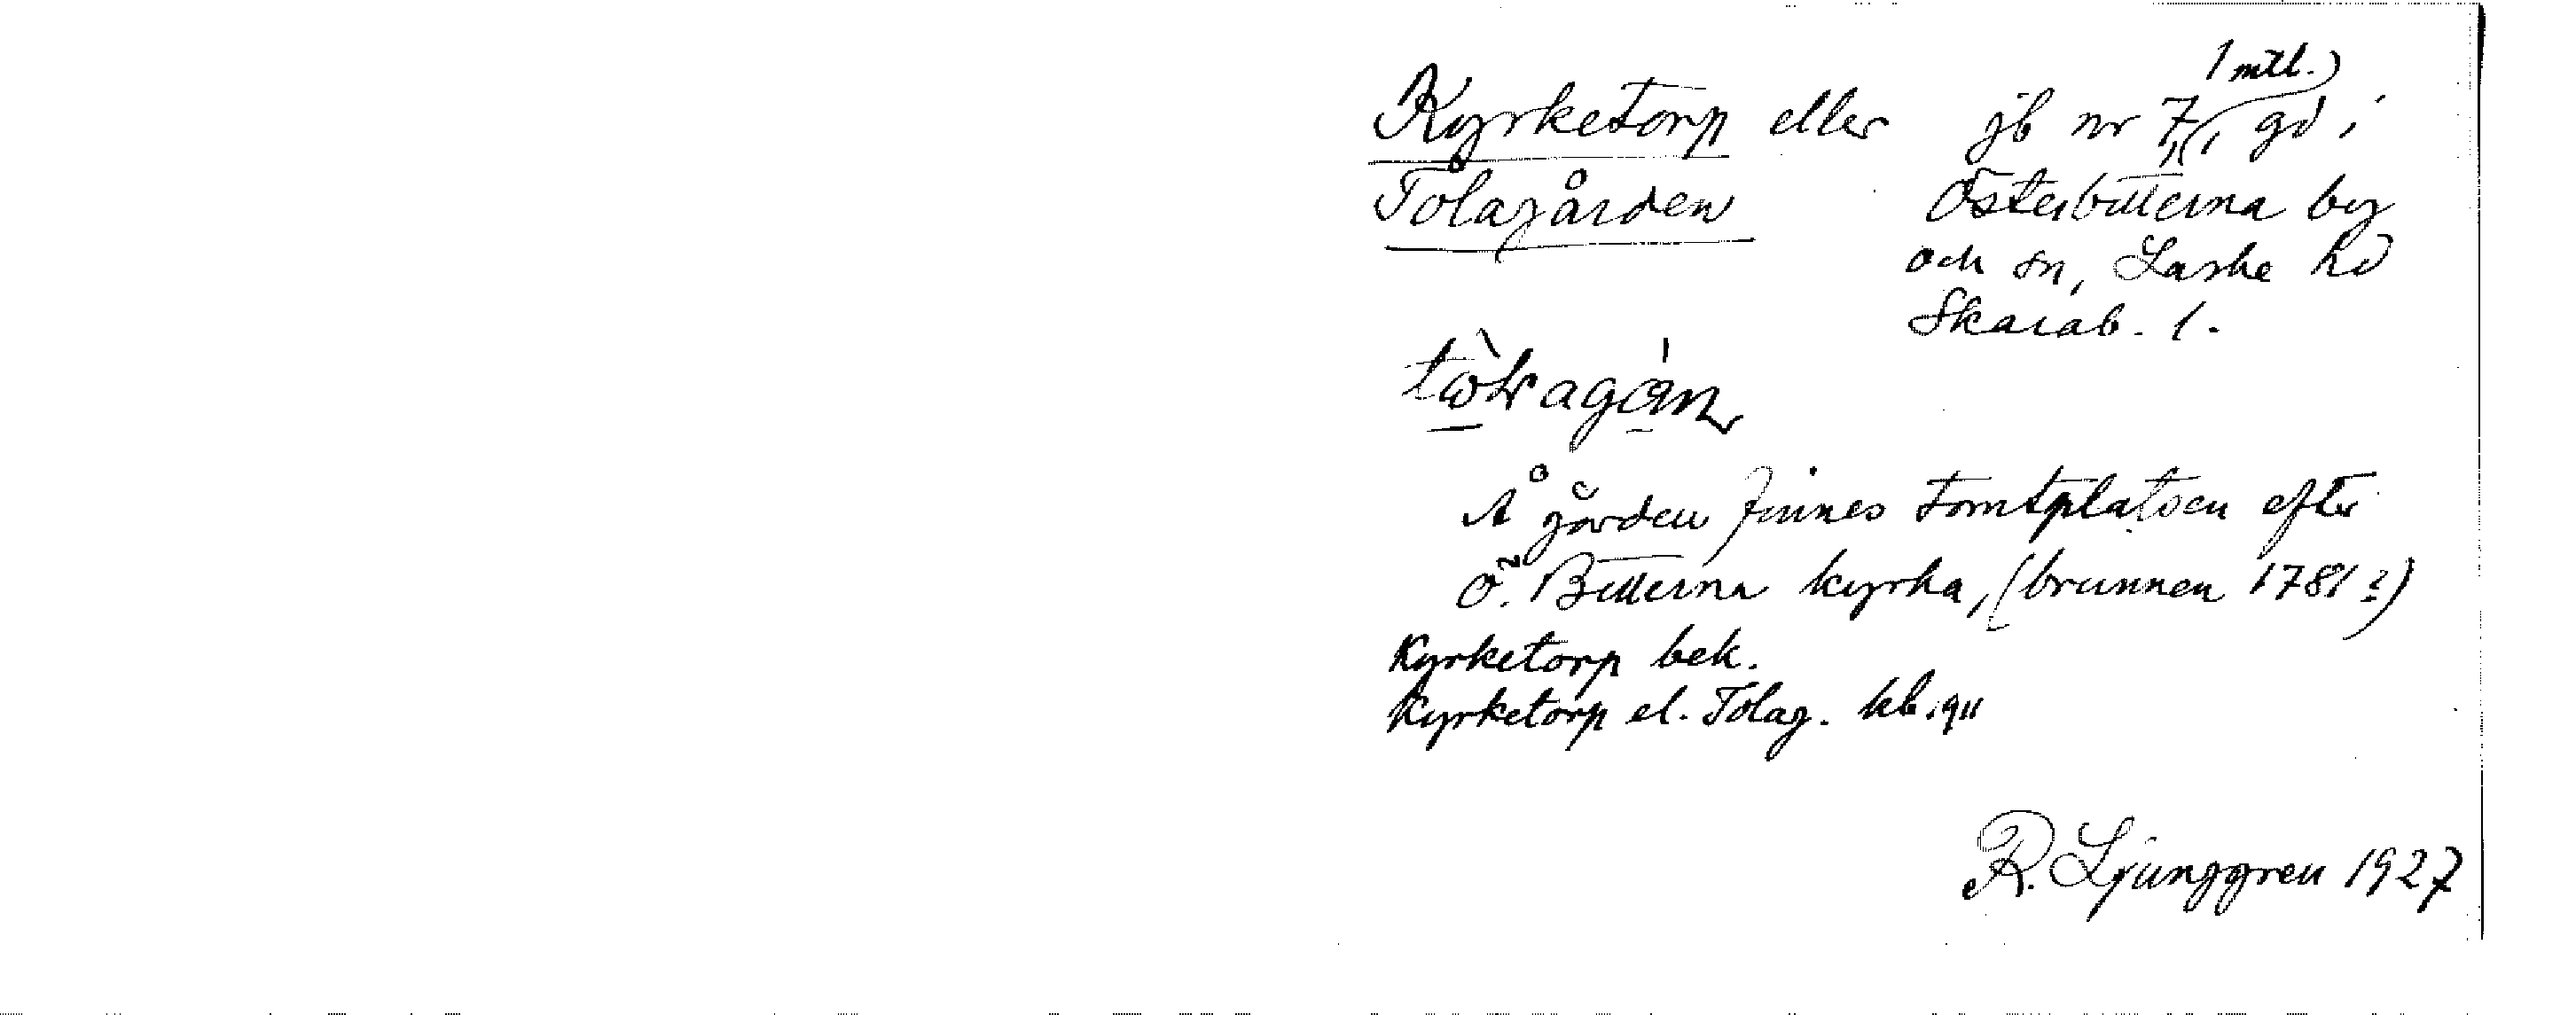 Kyrketorp eller
Tålagården
jb nr 7, 1 mtl., gd i
Österbitterna by
och sn, Laske hd
Skarab. l.
Å gården finnes tomtplatsen efter
Ö. Bitterna kyrka, (brunnen 1781?)
Kyrketorp bek.
Kyrketorp el. Tolag. kb 1911
R. Ljunggren 1927